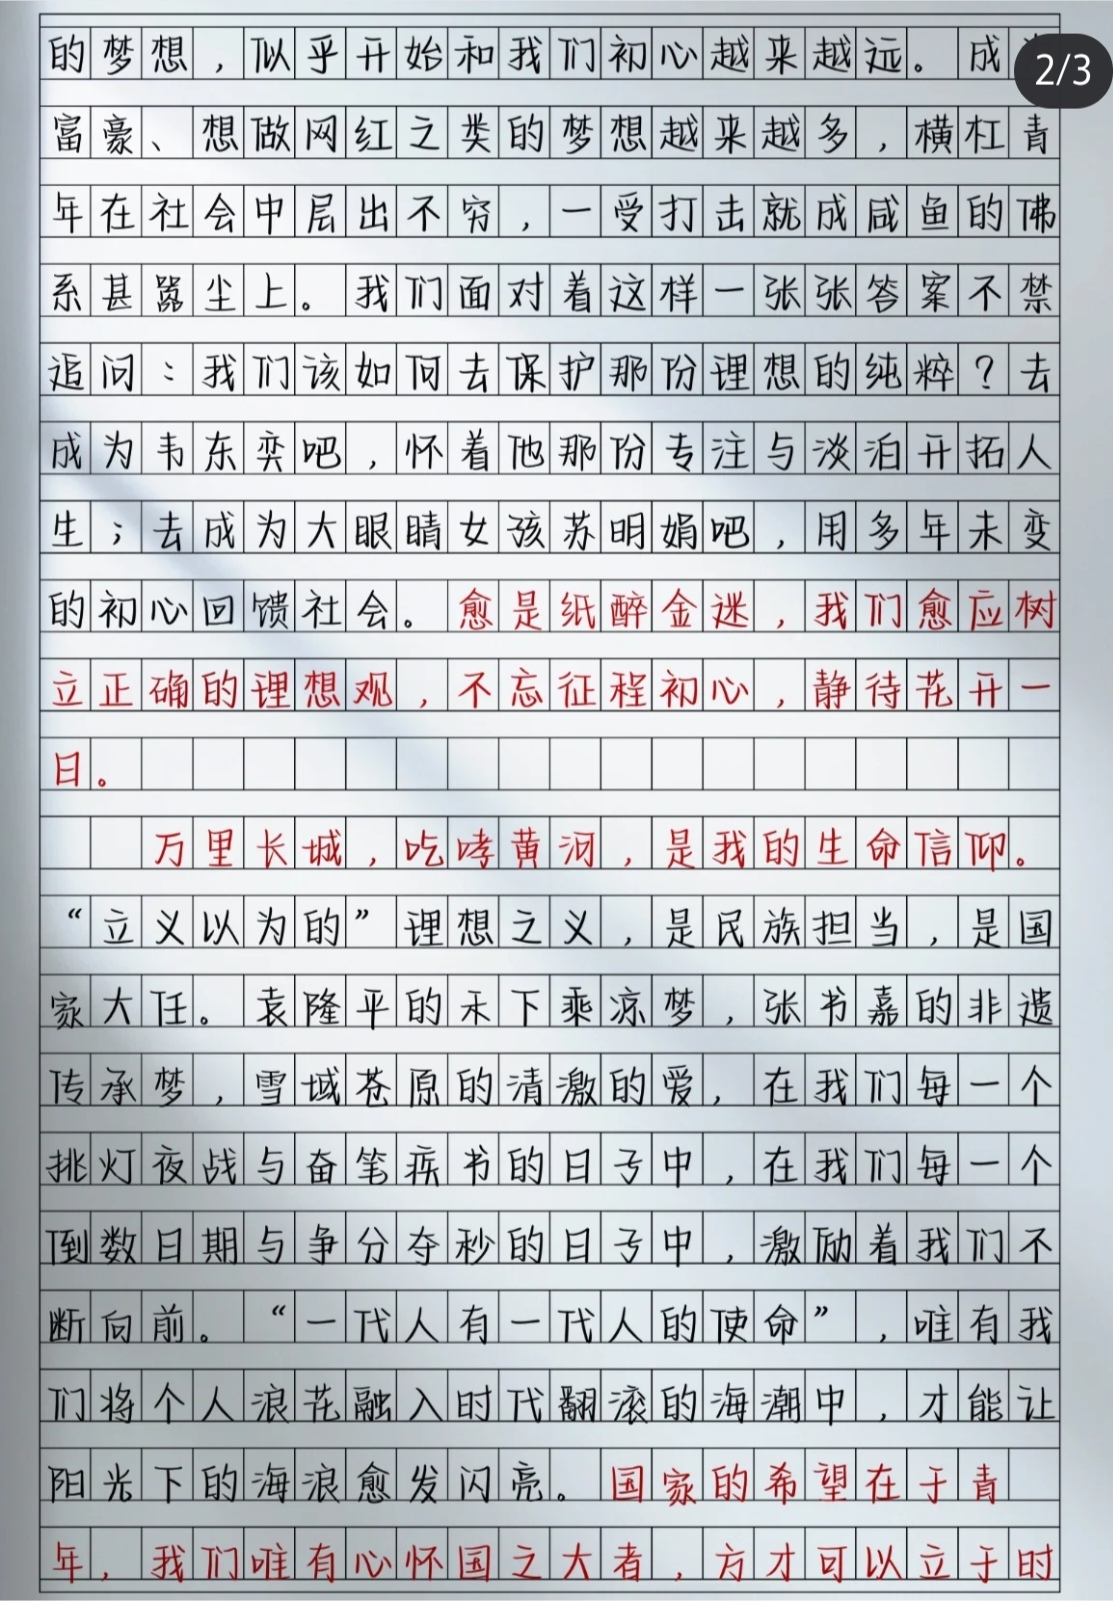 的梦想，似乎开始和我们初心越来越远。成
2/3
富豪、想做网红之类的梦想越来越多，横杠青
年在社会中层出不穷，一受打击就成咸鱼的佛
系甚嚣尘上。我们面对着这样一张张答案不禁
追问：我们该如何去保护那份理想的纯粹？去
成为韦东奕吧，怀着他那份专注与淡泊开拓人
生；去成为大眼睛女孩苏明娟吧，用多年未变
的初心回馈社会。愈是纸醉金迷，我们愈应树
立正确的理想观，不忘征程初心，静待花开一
日。
万里长城，吃哮黄河，是我的生命信仰。
“立义以为的”理想之义，是民族担当，是国
家大任。袁隆平的禾下乘凉梦，张书嘉的非遗
传承梦，雪域苍原的清澈的爱，在我们每一个
挑灯夜战与奋笔疾书的日子中，在我们每一个
倒数日期与争分夺秒的日子中，激励着我们不
断向前。“一代人有一代人的使命”，唯有我
们将个人浪花融入时代翻滚的海潮中，才能让
阳光下的海浪愈发闪亮。国家的希望在于青
年，我们唯有心怀国之大者，方才可以立于时